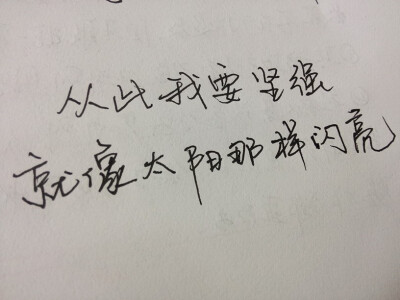 从此我要坚强
就像太阳那样闪亮